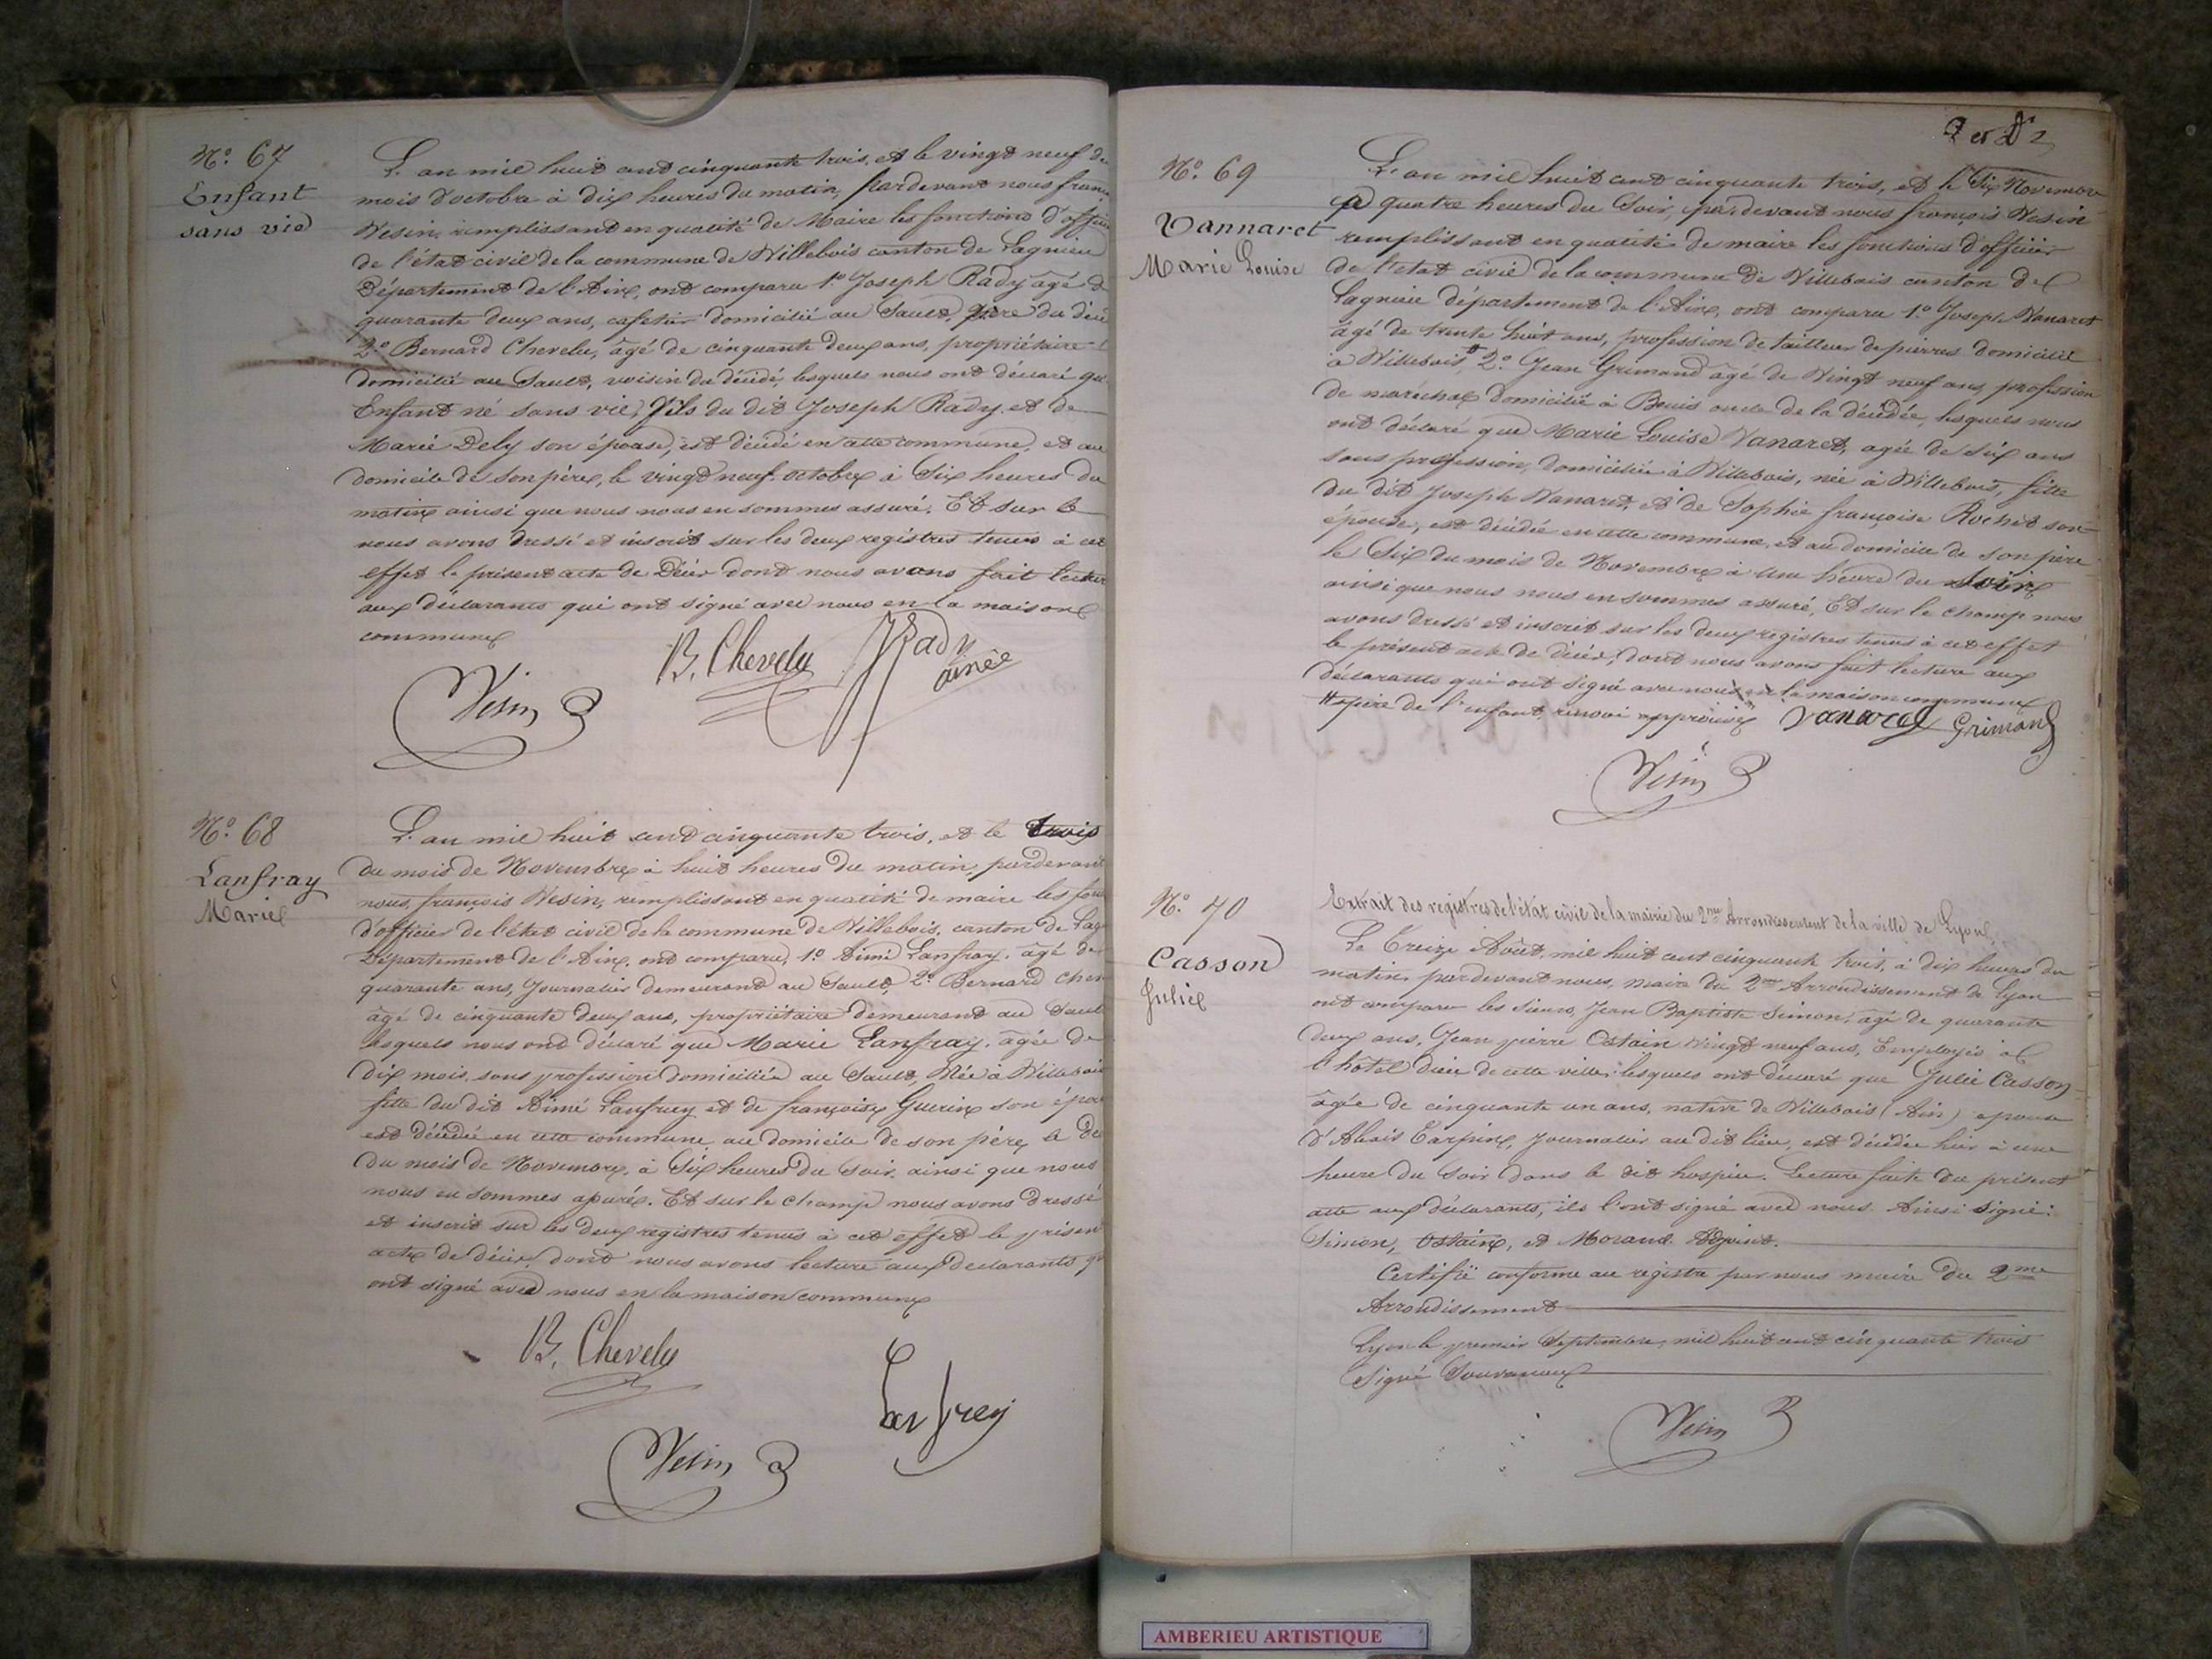 N.° 67
Enfant
sans vie
L'an mil huit cent cinquante trois, et le vingt neuf du
mois d'octobre à dix heures du matin, pardevant nous françois
Vesin, remplissant en qualité de Maire les fonctions d'officier
de l'état civil de la commune de Villebois canton de Lagnieu
Département de l'Ain, ont comparu 1.° Joseph Rady âgé de
quarante deux ans, cafetier domicilié au Sault, père du décé
2.° Bernard Chevelu, âgé de cinquante deux ans, propriétaire
domicilié au Sault, voisin du décédé, lesquels nous ont déclaré que
Enfant né sans vie, fils du dit Joseph Rady et de
Marie Dely son épouse, est décédé en cette commune, et au
domicile de son père, le vingt neuf octobre à Six heures du
matin ainsi que nous nous en sommes assuré. Et sur le
nous avons dressé et inscrit sur les deux registres tenus à cet
effet le présent acte de Décès dont nous avons fait lecture
aux déclarants qui ont signé avec nous en la maison
commune
B. Chevelu
J Rady
ainée
Vesin
N.° 68
Lanfray
Marie
L'an mil huit cent cinquante trois, et le trois
du mois de Novembre à huit heures du matin, pardevant
nous, françois Vesin, remplissant en qualité de maire les fonc
d'officier de l'état civil de la commune de Villebois, canton de Lag
Département de l'Ain, ont comparu, 1.° Aimé Lanfray, âgé de
quarante ans, Journalier demeurant au Sault, 2.° Bernard Chev
âgé de cinquante deux ans, propriétaire demeurant au Sault
lesquels nous ont déclaré que Marie Lanfray, âgée de
dix mois, sans profession domiciliée au Sault, Née à Villebois
fille du dit Aimé Lanfray et de françoise Guerin son épou
est décédée en cette commune au domicile de son père, le de
du mois de Novembre, à Six heures du Soir, ainsi que nous
nous en sommes assuré. Et sur le champ nous avons dressé
et inscrit sur les deux registres tenus à cet effet le présen
acte de décès, dont nous avons lecture aux déclarants qu
ont signé avec nous en la maison commune
B. Chevelu
Lanfrey
Vesin
N.° 69
Vannaret
Marie Louise
L'an mil huit cent cinquante trois, et le Six Novembre
à quatre heures du Soir, pardevant nous françois Vesin
remplissant en qualité de maire les fonctions d'officier
de l'état civil de la commune de Villebois canton de
Lagnieu département de l'Ain, ont comparu 1.° Joseph Vanaret
âgé de trente huit ans, profession de tailleur de pierres domicilié
à Villebois # 2.° Jean Grimand âgé de Vingt neuf ans, profession
de maréchal domicilié à Bouis oncle de la décédée, lesquels nous
ont déclaré que Marie Louise Vanaret, agée de six ans
sans profession, domiciliée à Villebois, née à Villebois, fille
du dit Joseph Vanaret, et de Sophie françoise Rochet son
épouse, est décédée en cette commune, et au domicile de son père
le Six du mois de Novembre à une heure du Soir
ainsi que nous nous en sommes assuré, Et sur le champ nous
avons dressé et inscrit sur les deux registres tenus à cet effet
le présent acte de décès, dont nous avons fait lecture aux
déclarants qui ont signé avec nous en la maison commune
# père de l'enfant, renvoi approuvé Vanaret Grimand
Vesin
N.° 70
Casson
Julie
Extrait des registres de l'état civil de la mairie du 2me Arrondissement de la ville de Lyon
Le Treize Août, mil huit cent cinquante trois, à dix heures du
matin, pardevant nous, maire du 2me Arrondissement de Lyon
ont comparu les sieurs, Jean Baptiste Simon, âgé de quarante
deux ans, Jean pierre Ostain vingt neuf ans, Employés à
l'hôtel Dieu de cette ville, lesquels ont déclaré que Julie Casson
âgée de cinquante un ans, native de Villebois (Ain) épouse
d'Alexis Tarpin, Journalier au dit lieu, est décédée hier à une
heure du Soir dans le dit hospice. Lecture faite du présent
acte aux déclarants, ils l'ont signé avec nous. Ainsi Signé:
Simon, Ostain, et Morand. Adjoint.
Certifié conforme au registre par nous maire du 2me
Arrondissement
Lyon le premier Septembre, mil huit cent cinquante trois
Signé
Vesin
AMBERIEU ARTISTIQUE